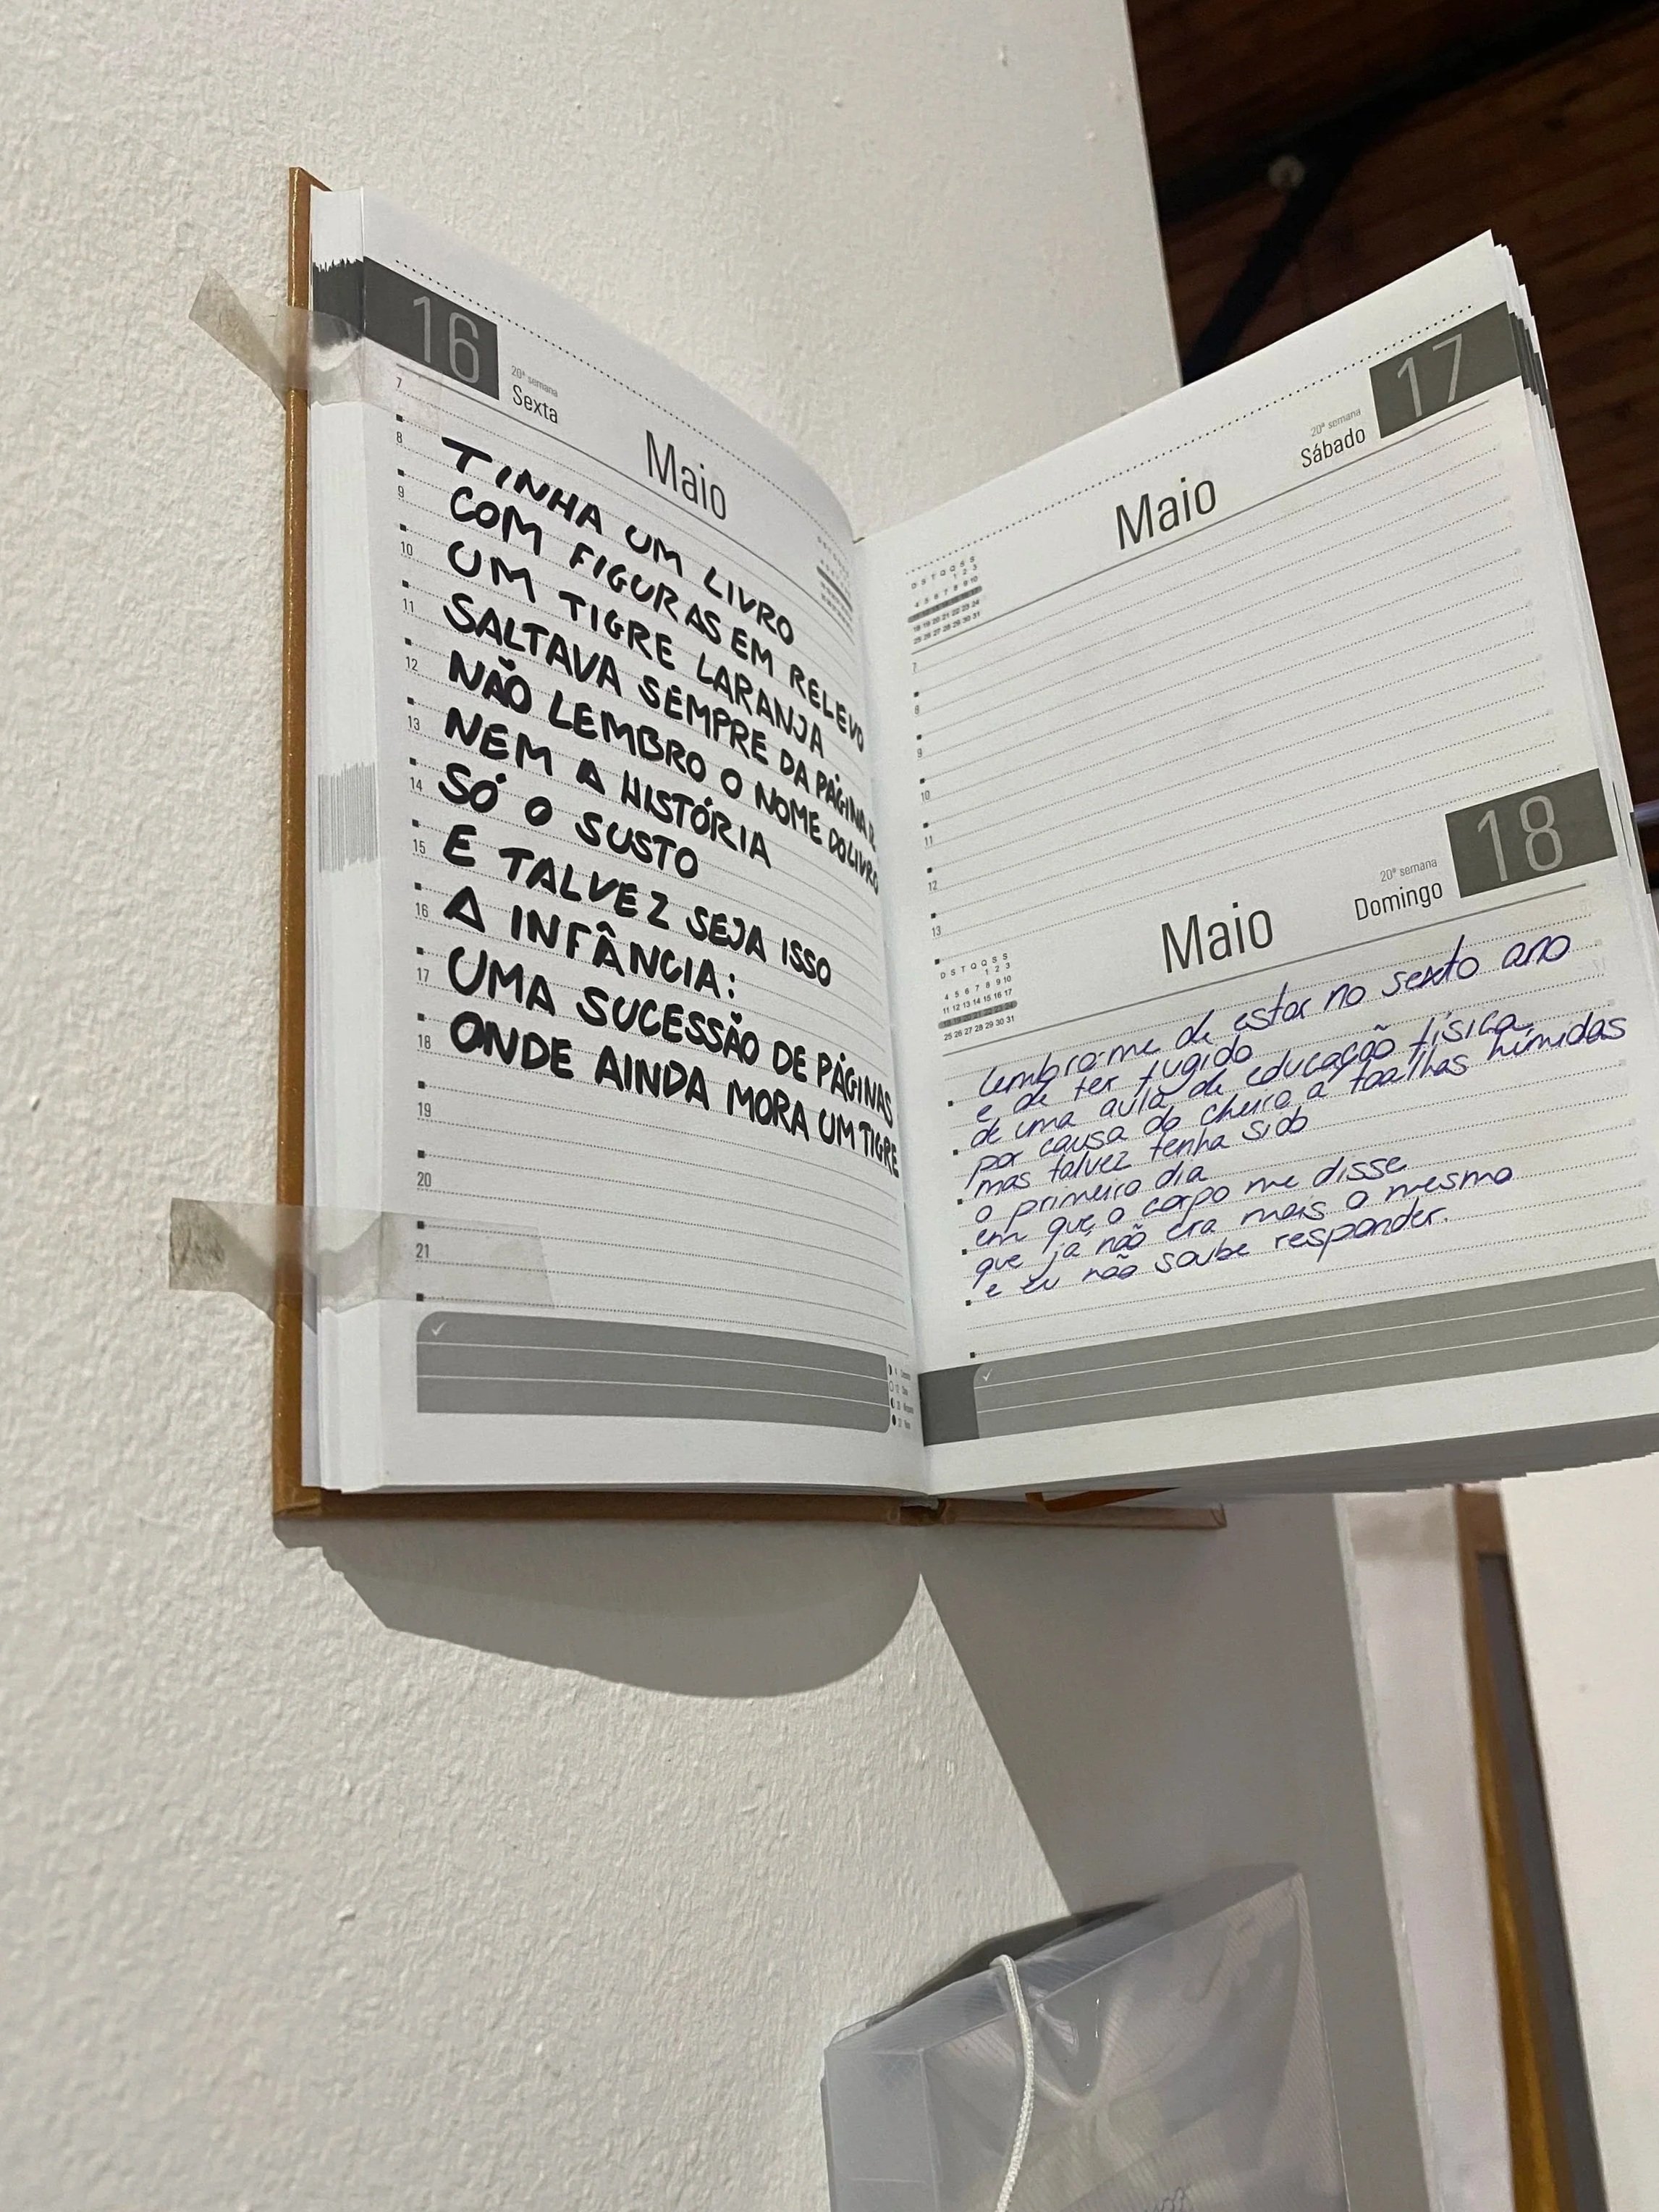 16
20ª semana
Sexta
Maio
7
8
9
10
11
12
13
14
15
16
17
18
19
20
21
TINHA UM LIVRO
COM FIGURAS EM RELEVO
UM TIGRE LARANJA
SALTAVA SEMPRE DA PÁGINA
NÃO LEMBRO O NOME DO LIVRO
NEM A HISTÓRIA
SÓ O SUSTO
E TALVEZ SEJA ISSO
A INFÂNCIA:
UMA SUCESSÃO DE PÁGINAS
ONDE AINDA MORA UM TIGRE
17
20ª semana
Sábado
Maio
D S T Q Q S S
1 2 3
4 5 6 7 8 9 10
11 12 13 14 15 16 17
18 19 20 21 22 23 24
25 26 27 28 29 30 31
7
8
9
10
11
12
13
18
20ª semana
Domingo
Maio
D S T Q Q S S
1 2 3
4 5 6 7 8 9 10
11 12 13 14 15 16 17
18 19 20 21 22 23 24
25 26 27 28 29 30 31
Lembro-me de estar no sexto ano
e de ter fugido
de uma aula de educação física
por causa do cheiro a toalhas húmidas
mas talvez tenha sido
o primeiro dia
em que o corpo me disse
que já não era mais o mesmo
e eu não soube responder.